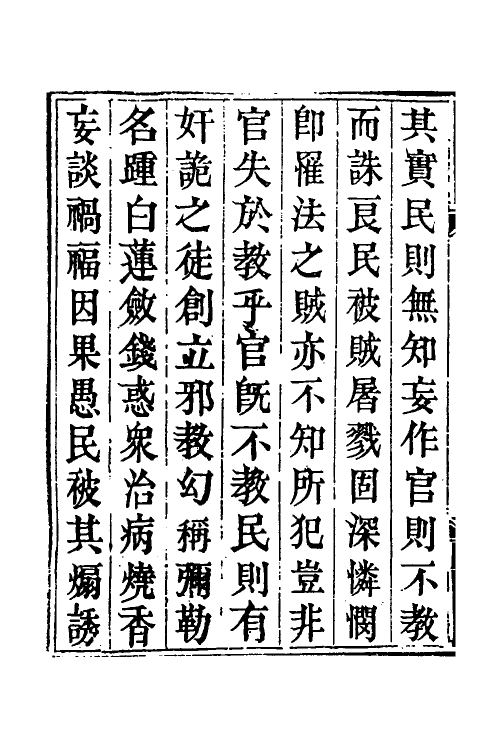 其實民則無知妄作官則不教
而誅良民被賊屠戮固深憐憫
卽罹法之賊亦不知所犯豈非
官失於教乎官旣不教民則有
奸詭之徒創立邪教幻稱彌勒
名踵白蓮斂錢惑衆治病燒香
妄談禍福因果愚民被其煽誘